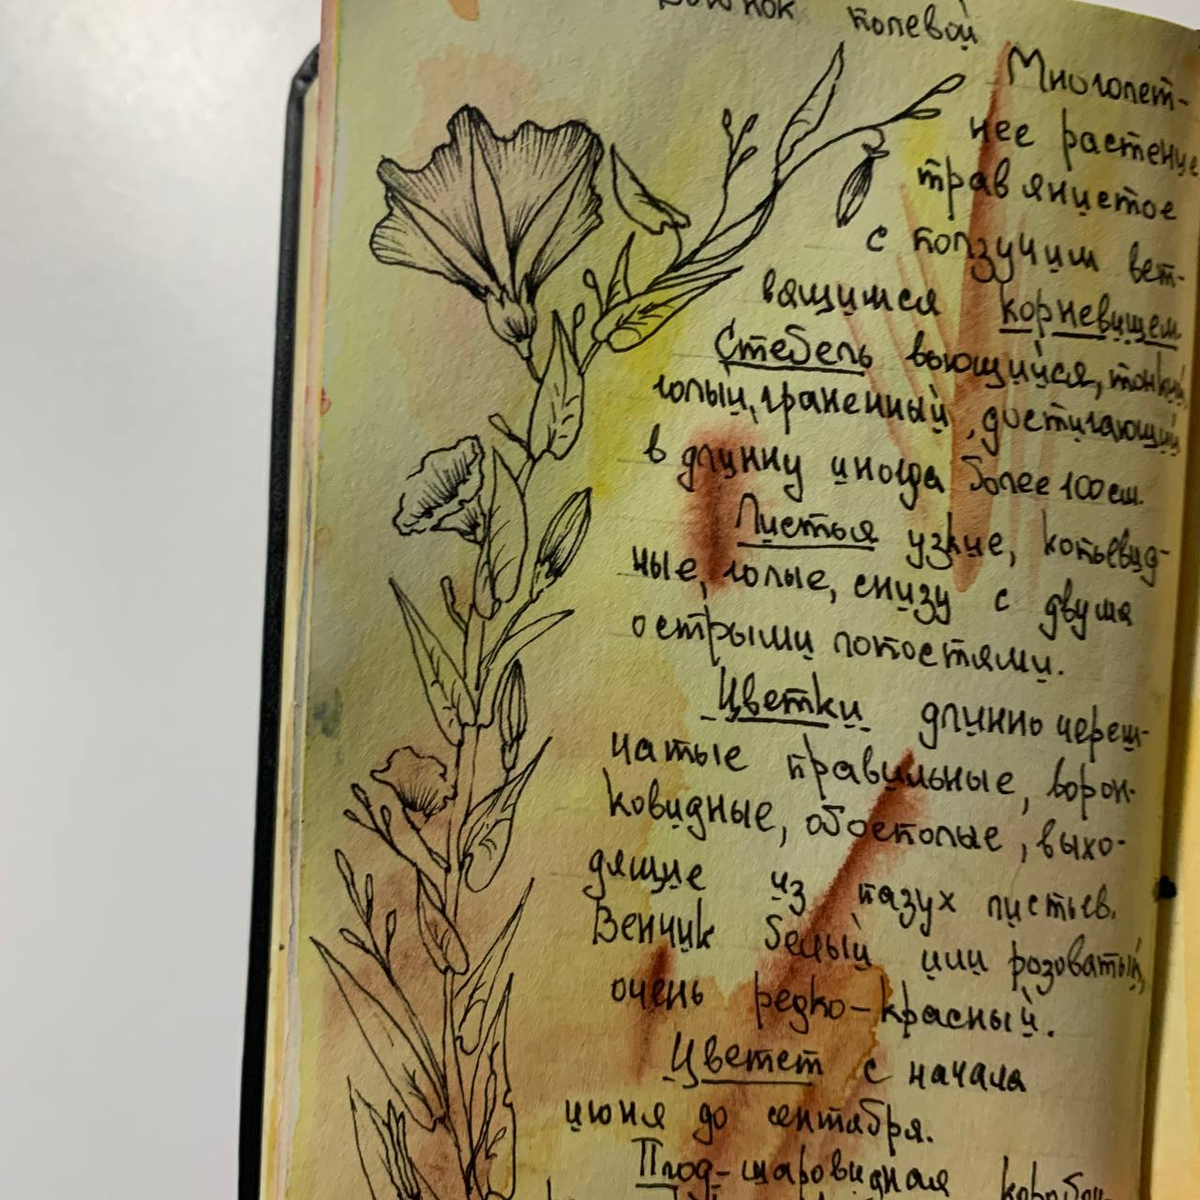 Вьюнок полевой
Многолет-
нее растение
травянистое
с ползучим вет-
вящимся корневищем.
Стебель вьющийся, тонкий,
голый, граненный, достигающий
в длинну иногда более 100 см.
Листья узкие, копьевид-
ные, голые, снизу с двумя
острыми лопостями.
Цветки длинно череш-
чатые правильные, ворон-
ковидные, обоеполые, выхо-
дящие из пазух листьев.
Венчик белый или розоватый,
очень редко-красный.
Цветет с начала
июня до сентября.
Плод-шаровидная